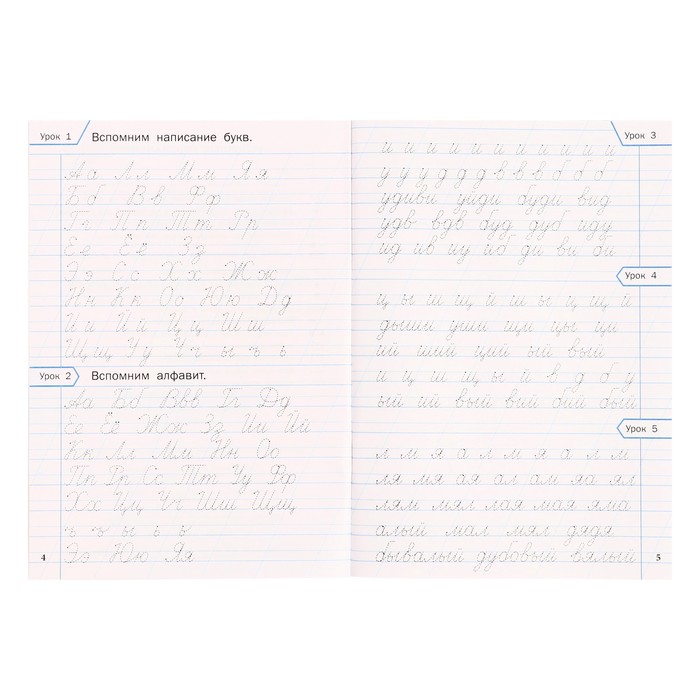 Урок 1
Вспомним написание букв.
Аа Лл Мм Яя
Бб Вв Фф
Гг Пп Тт Рр
Ее Ёё Зз
Ээ Сс Хх Жж
Нн Кк Оо Юю Дд
Ии Йй Цц Шш
Щщ Уу Чч ы ъ ь
Урок 2
Вспомним алфавит.
Аа Бб Ввв Гг Дд
Ее Ёё Жж Зз Ии Йй
Кк Лл Мм Нн Оо
Пп Рр Сс Тт Уу Фф
Хх Цц Чч Шш Щщ
ъ ъ ы ь ь
Ээ Юю Яя
4
Урок 3
и и и и и и и и и и и
у у у д д д в в в б б б
удиви уйди буди вид
удв вдв буд дуб иду
ид ив иу иб ди ви би
Урок 4
ц ы ш щ й ш ы ц щ й
дыши уши щи цы ци
ий ший щий ый вый
и ц ш щ ы й в д б у
ый ий вый вий бий бый
Урок 5
л м я а л м я а л м
ля мя ая ал ам яа ял
лям мял лая мая яма
алый мал мял дядя
бывалый дубовый вялый
5